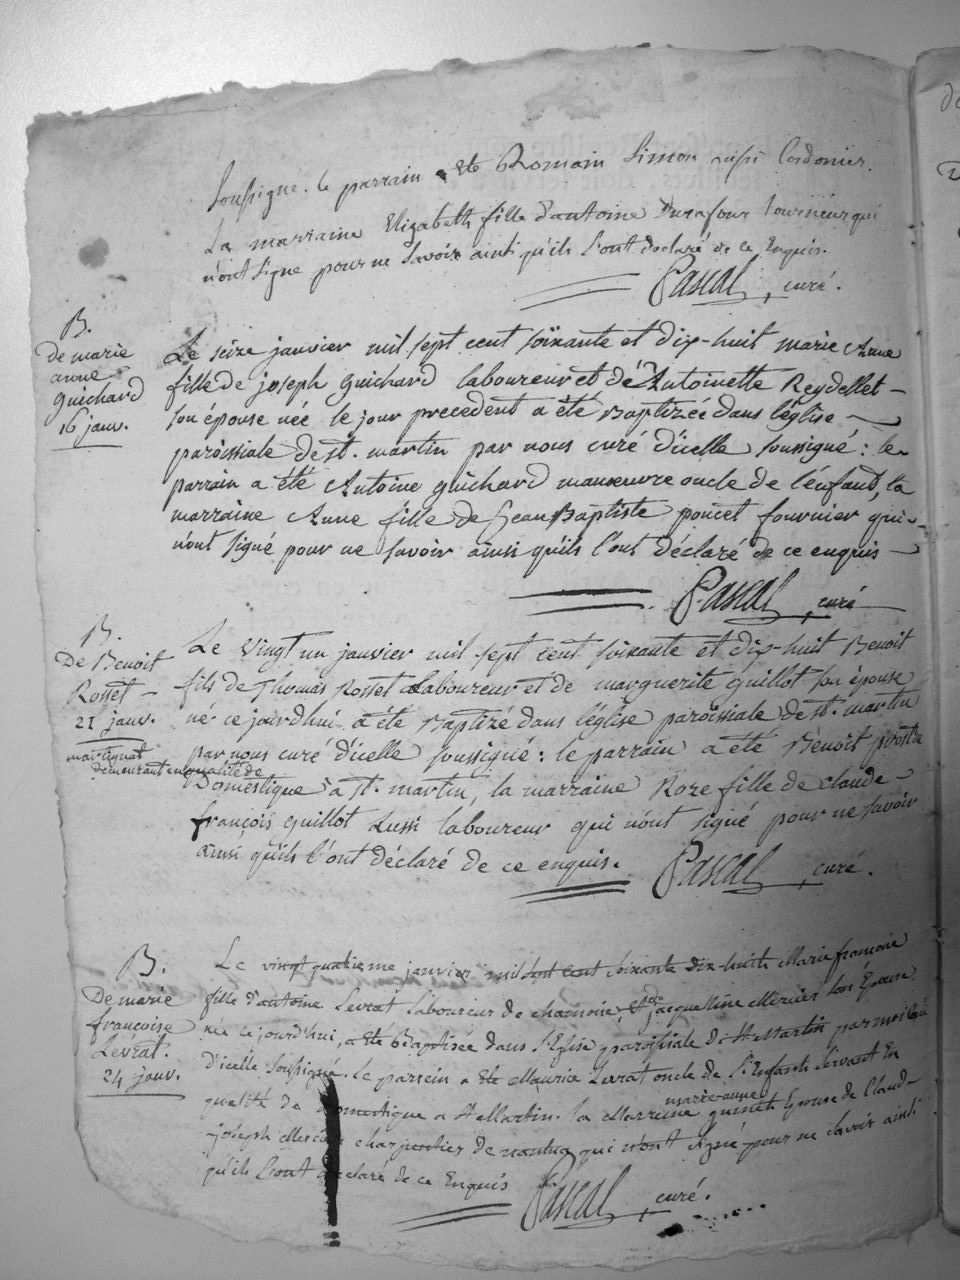 soussigné. le parrain a ete Romain Simon aussi Cordonier.
La marraine Elizabeth fille d'antoine Durafour tourneur qui
n'ont signé pour ne Savoir ainsi qu'ils l'ont declaré de ce Enquis.
Pascal, curé.
B.
De marie
anne
guichard
16 janv.
Le seize janvier mil sept cent soixante et dix-huit marie Anne
fille de joseph guichard laboureur et de Antoinette Reydellet
son épouse née le jour precedent a été Baptizée dans l'église
paroissiale de st. martin par nous curé d'icelle soussigné : le
parrain a été Antoine guichard manœuvre oncle de l'enfant, la
marraine Anne fille de Jean Baptiste poncet fournier qui
n'ont signé pour ne savoir ainsi qu'ils l'ont déclaré de ce enquis
Pascal, curé
B.
De Benoit
Rosset
21 janv.
martignat
Le vingt un janvier mil sept cent soixante et dix-huit Benoit
fils de Thomas Rosset Laboureur et de marguerite guillot son épouse
né ce jourdhui a été Baptizé dans l'église paroissiale de st. martin
par nous curé d'icelle soussigné : le parrain a été Benoit
demeurant en qualité de
Domestique à st. martin, la marraine Roze fille de claude
françois guillot aussi laboureur qui n'ont signé pour ne savoir
ainsi qu'ils l'ont déclaré de ce enquis.
Pascal, curé.
B.
De marie
françoise
Levrat.
24 janv.
Le vingt quatrieme janvier mil sept cent soixante dix-huit Marie francoise
fille d'antoine Levrat Laboureur de et de jacqueline Mercier son Epouse
née ce jourd'hui, a ete Baptisée dans l'Eglise paroissiale de St Martin par moi Curé
d'icelle soussigné. Le parrein a ete Maurice Levrat oncle de l'Enfant vivant En
qualité de domestique a St Martin. la Marreine marie-anne Epouse de Claud-
joseph Mercier charpentier de nantua qui n'ont signé pour ne savoir ainsi
qu'ils l'ont declaré de ce Enquis
Pascal, curé.